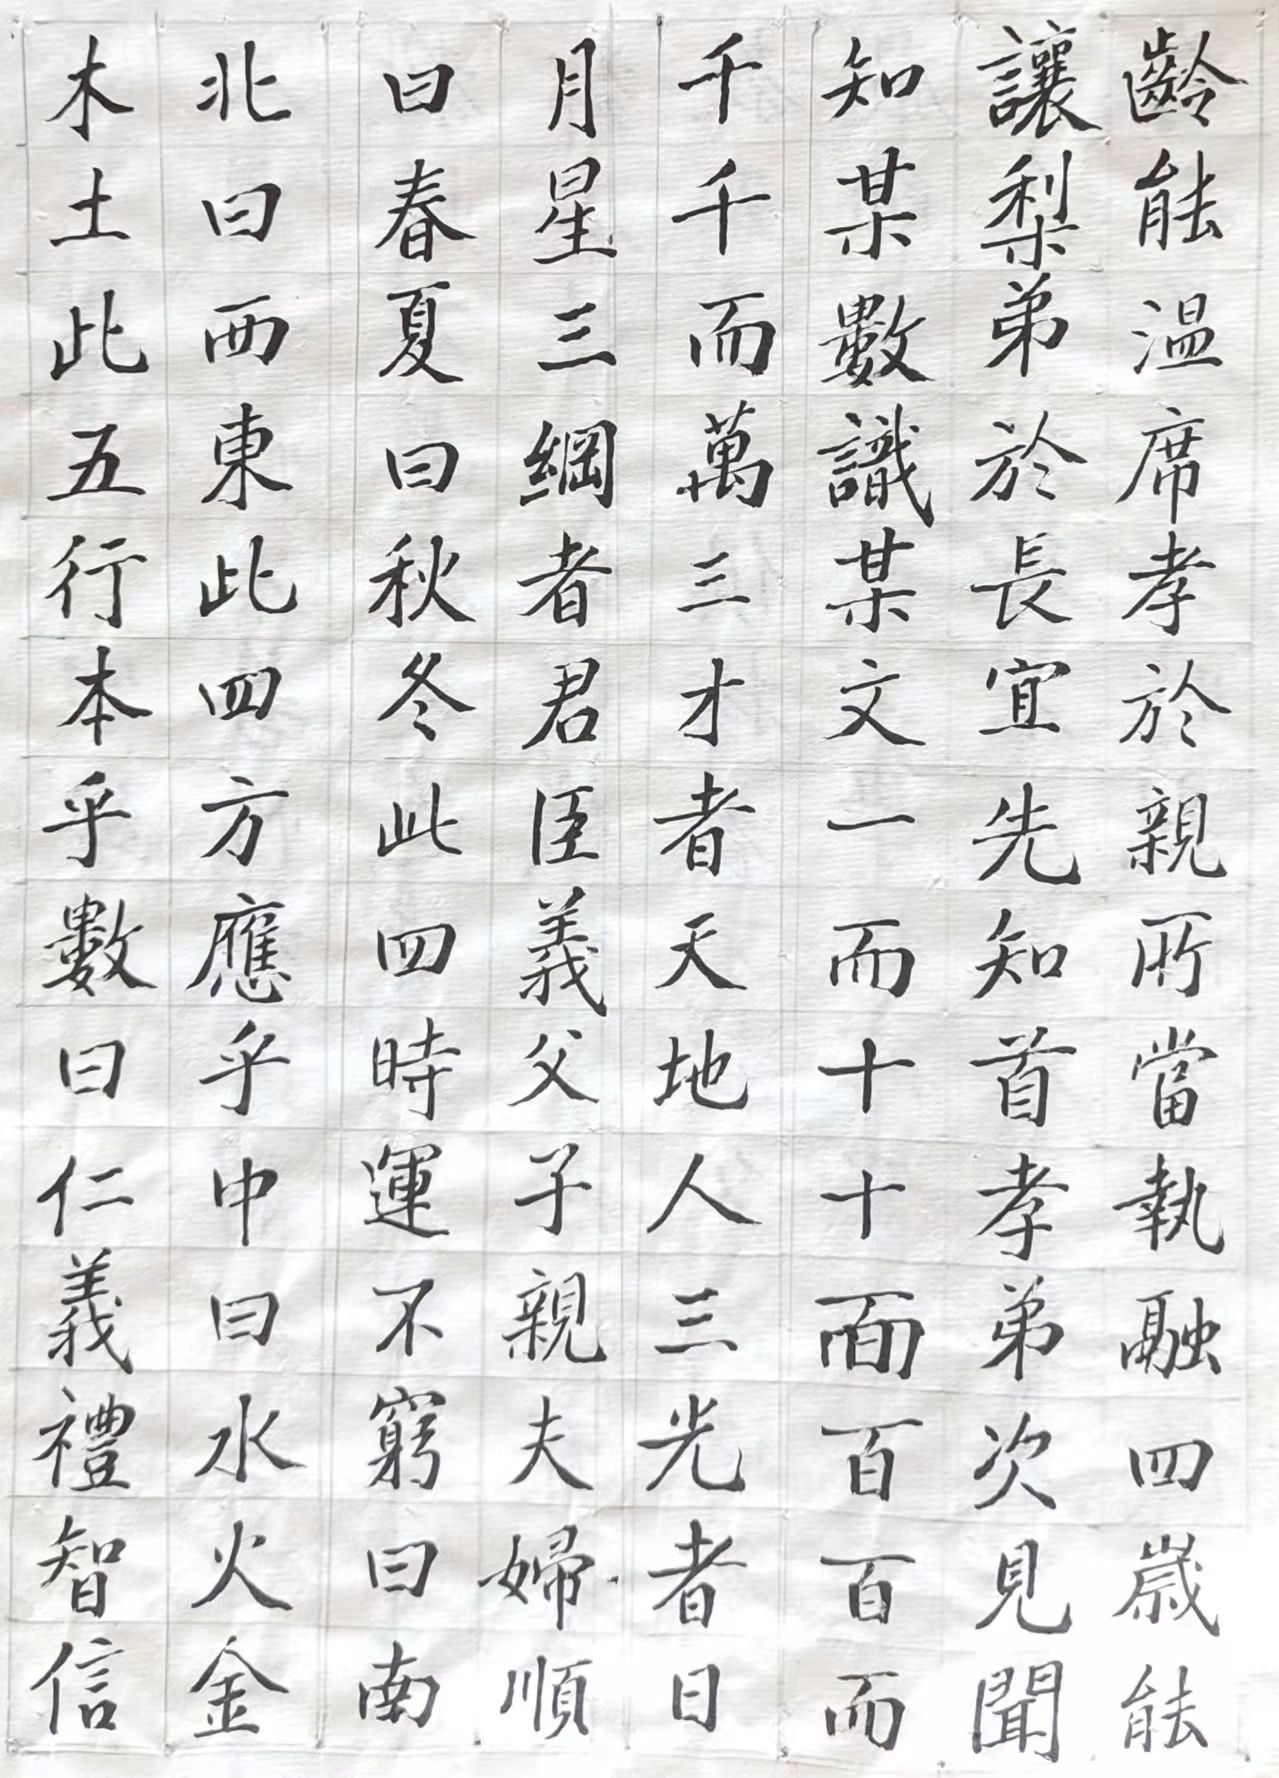 齡能温席孝於親所當執融四歲能
讓梨弟於長宜先知首孝弟次見聞
知某數識某文一而十十面百百而
千千而萬三才者天地人三光者日
月星三綱者君臣義父子親夫婦順
曰春夏曰秋冬此四時運不窮曰南
北曰西東此四方應乎中曰水火金
木土此五行本乎數曰仁義禮智信